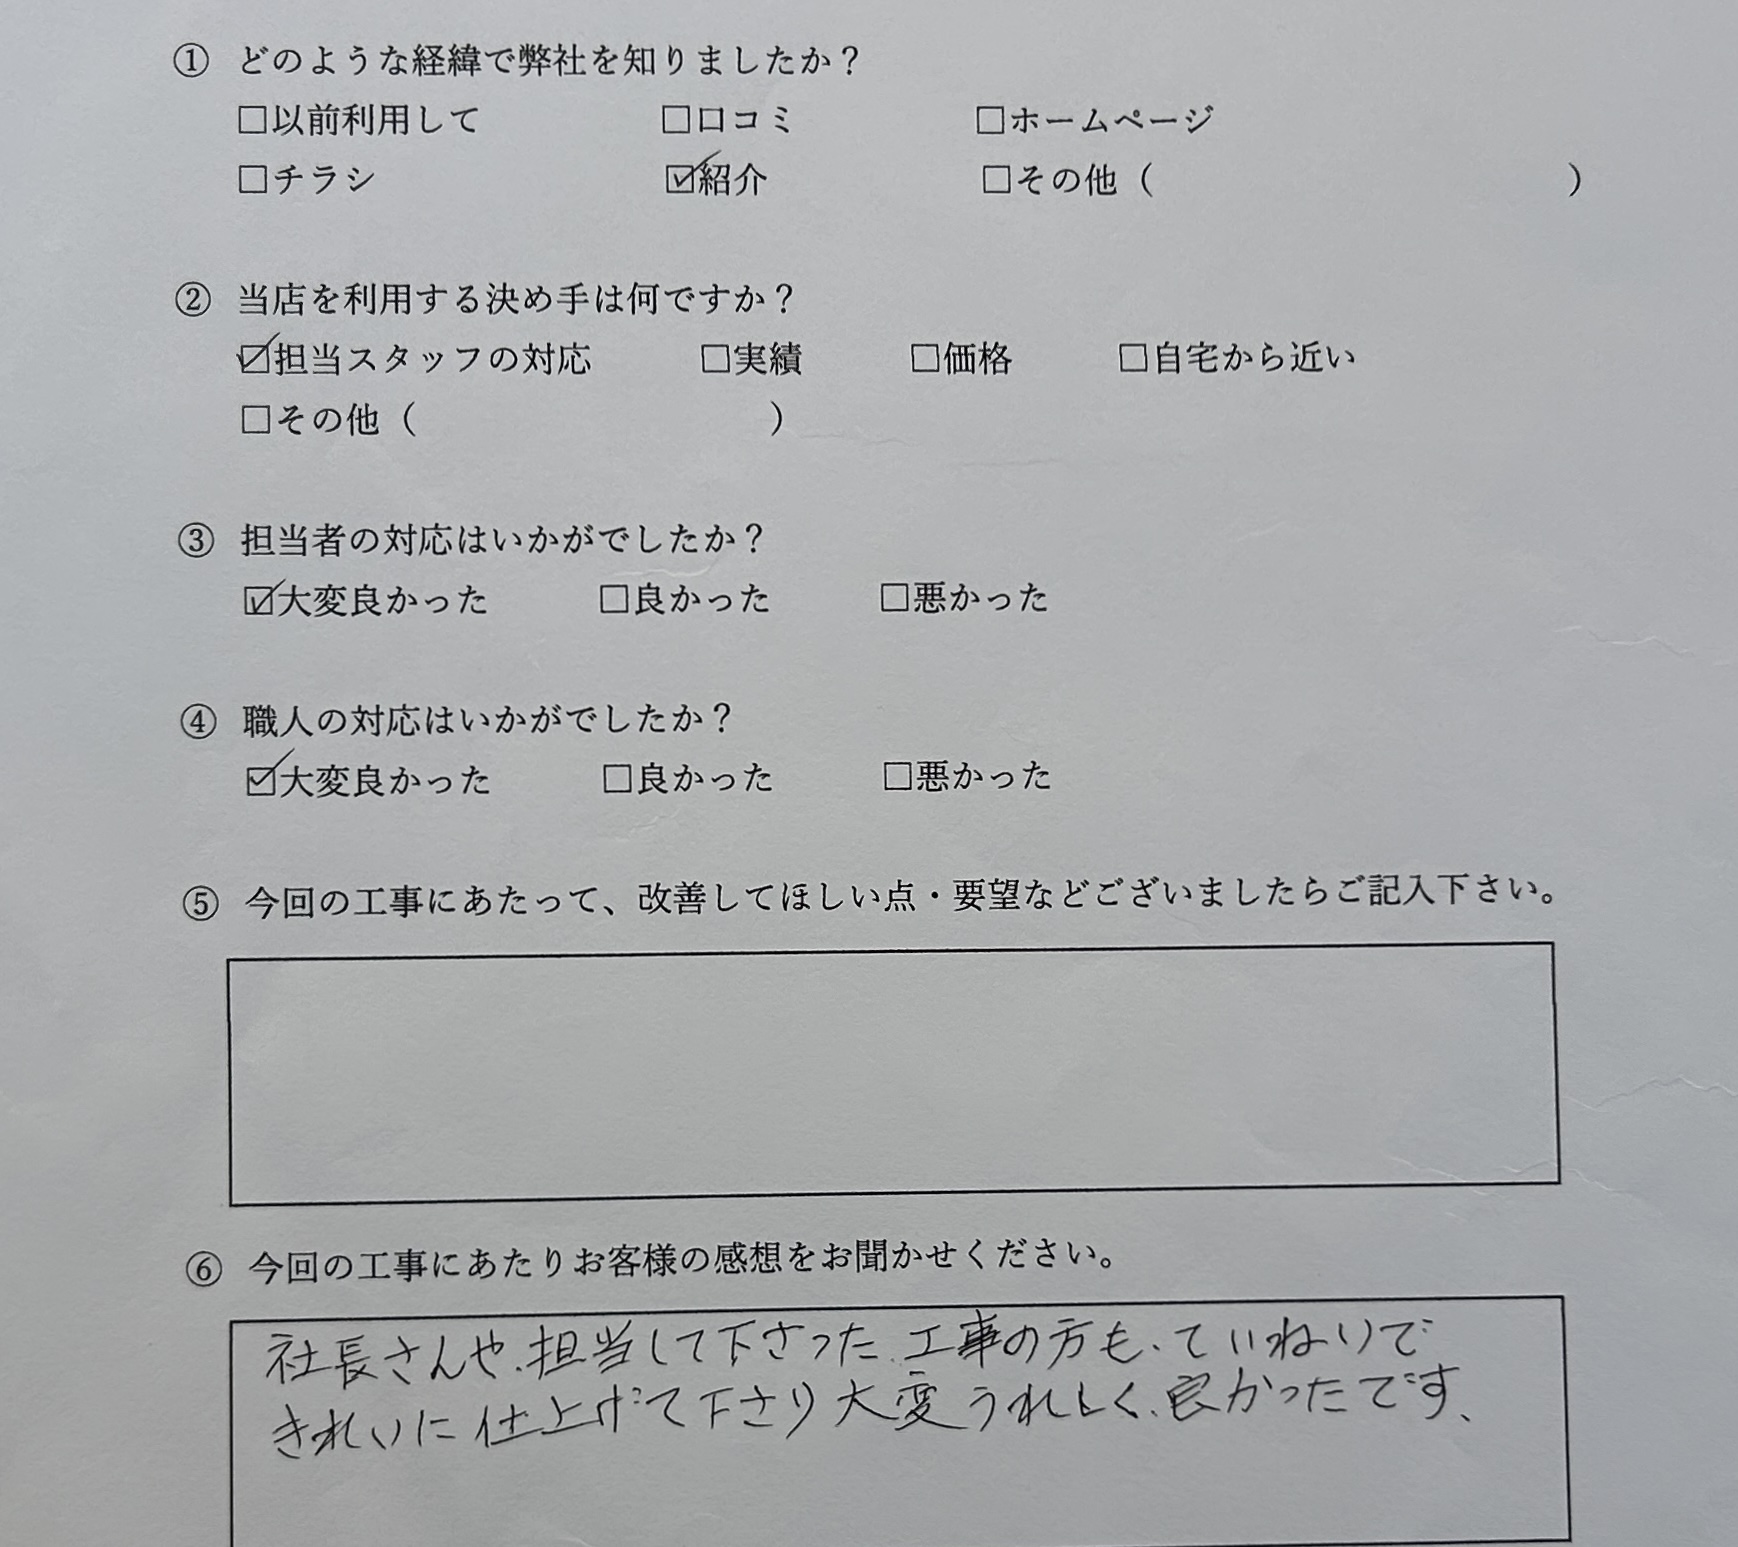 ① どのような経緯で弊社を知りましたか？
□以前利用して □口コミ □ホームページ
□チラシ ☑紹介 □その他（ ）
② 当店を利用する決め手は何ですか？
☑担当スタッフの対応 □実績 □価格 □自宅から近い
□その他（ ）
③ 担当者の対応はいかがでしたか？
☑大変良かった □良かった □悪かった
④ 職人の対応はいかがでしたか？
☑大変良かった □良かった □悪かった
⑤ 今回の工事にあたって、改善してほしい点・要望などございましたらご記入下さい。
⑥ 今回の工事にあたりお客様の感想をお聞かせください。
社長さんや、担当して下さった、工事の方も、ていねいで
きれいに仕上げて下さり大変うれしく、良かったです、